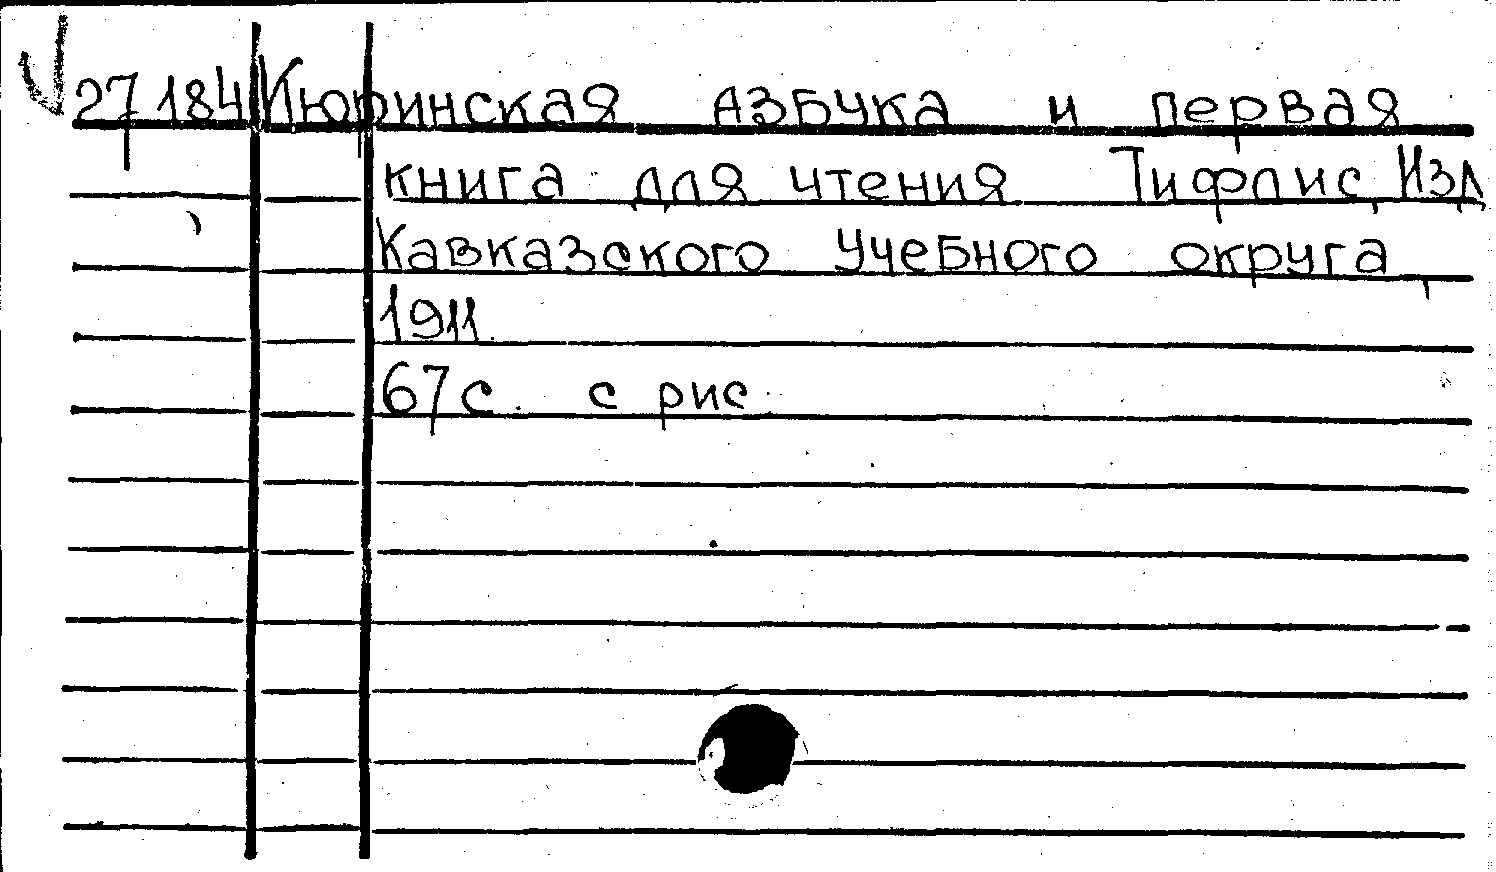 27184 Кюринская азбука и первая
книга для чтения Тифлис, Изд
Кавказского учебного округа,
1911.
67 с. с рис.